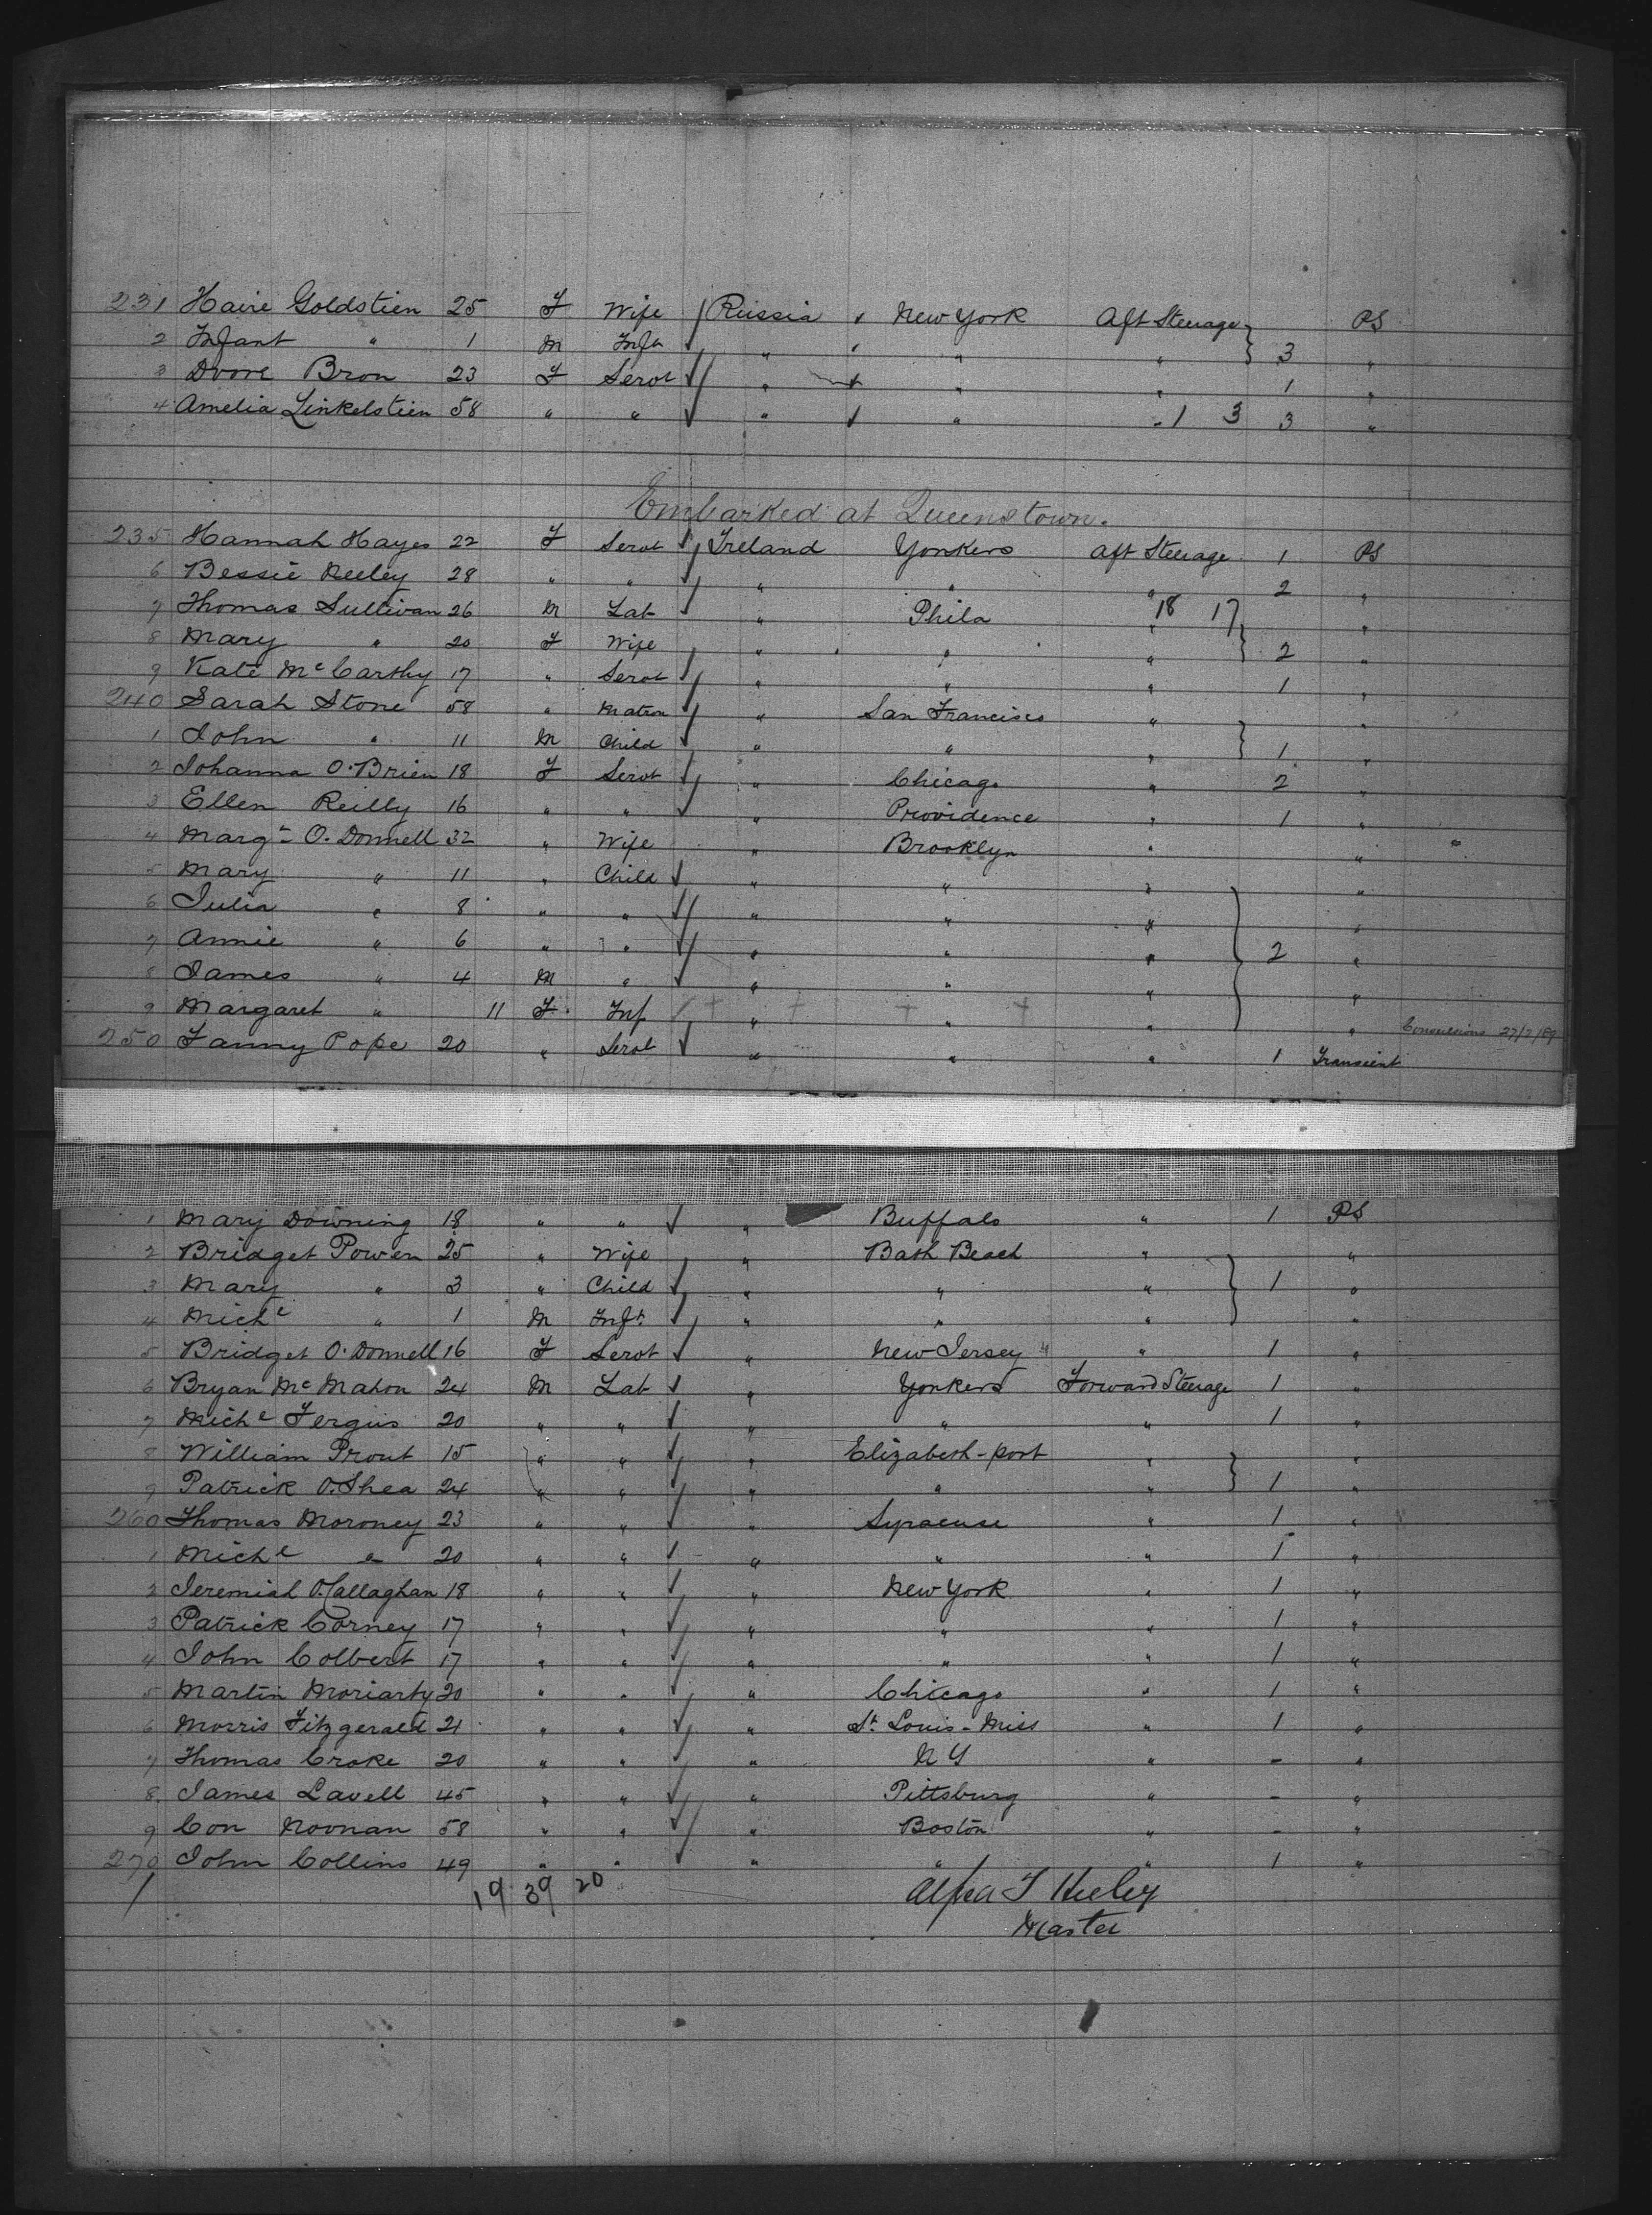 231 Haire Goldstien 25 F Wife Russia New York Aft Steerage PS
2 Infant " 1 M Inft " " " 3 "
3 Dvore Bron 23 F Servt " " " 1 "
4 Amelia Linkelstien 58 " " " " " 1 3 3 "
Embarked at Queenstown.
235 Hannah Hayes 22 F Servt Ireland Yonkers Aft Steerage 1 PS
6 Bessie Neeley 28 " " " " " 2 "
7 Thomas Sullivan 26 M Lab " Phila " 18 17 "
8 Mary " 20 F Wife " " " 2 "
9 Kate McCarthy 17 " Servt " " " 1 "
240 Sarah Stone 58 " Matron " San Francisco " "
1 John " 11 M Child " " " 1 "
2 Johanna O'Brien 18 F Servt " Chicago " 2 "
3 Ellen Reilly 16 " " " Providence " 1 "
4 Margt O'Donnell 32 " Wife " Brooklyn " " "
5 Mary " 11 " Child " " " "
6 Julia " 8 " " " " " "
7 Annie " 6 " " " " " 2 "
8 James " 4 M " " " " "
9 Margaret " 11 F Inf " " " " Convulsions 27/7/89
250 Fanny Pope 20 " Servt " " " 1 Transient
1 Mary Downing 18 " " " Buffalo " 1 PS
2 Bridget Power 25 " Wife " Bath Beach " "
3 Mary " 3 " Child " " " 1 "
4 Michl " 1 M Inft " " " "
5 Bridget O'Donnell 16 F Servt " New Jersey " 1 "
6 Bryan McMahon 24 M Lab " Yonkers Forward Steerage 1 "
7 Michl Fergus 20 " " " " " 1 "
8 William Prout 15 " " " Elizabeth-port " "
9 Patrick O'Shea 24 " " " " " 1 "
260 Thomas Moroney 23 " " " Syracuse " 1 "
1 Michl " 20 " " " " " 1 "
2 Jeremiah O'Callaghan 18 " " " New York " 1 "
3 Patrick Corney 17 " " " " " 1 "
4 John Colbert 17 " " " " " 1 "
5 Martin Moriarty 20 " " " Chicago " 1 "
6 Morris Fitzgerald 21 " " " St Louis - Miss " 1 "
7 Thomas Croke 20 " " " N Y " - "
8 James Lavell 45 " " " Pittsburg " - "
9 Con Noonan 58 " " " Boston " - "
270 John Collins 49 " " " " " 1 "
1 19 39 20
Master